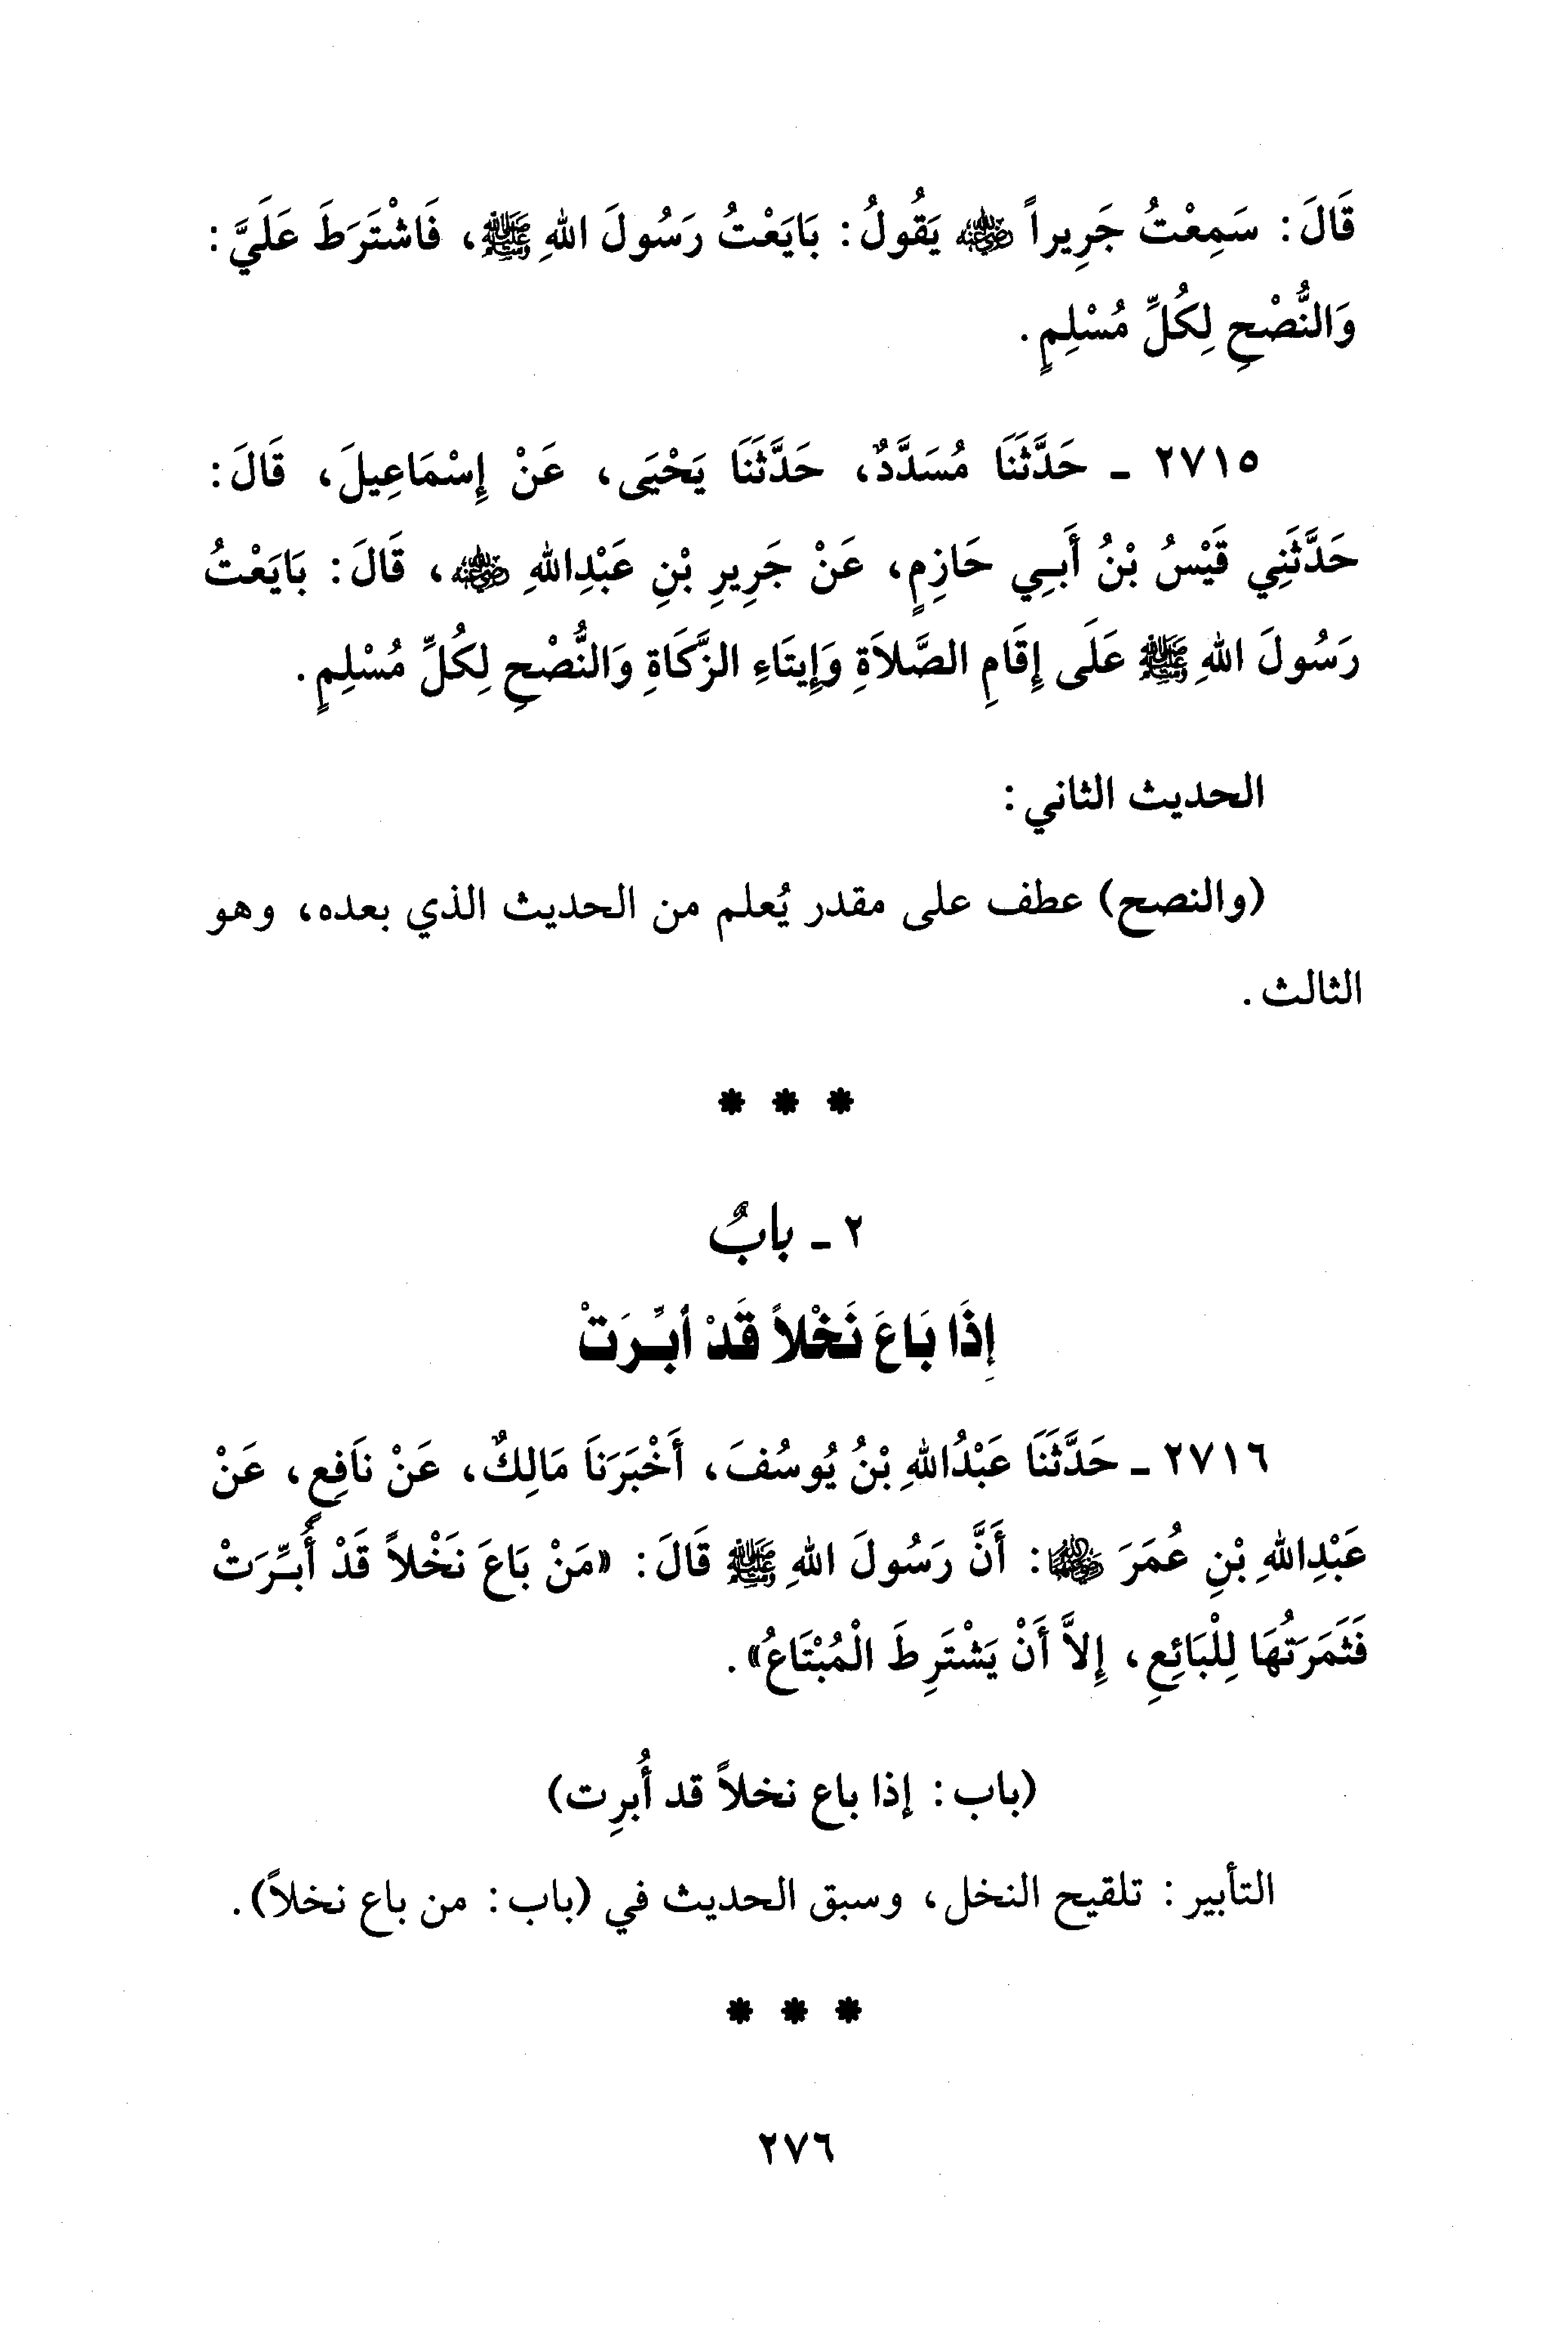 قَالَ: سَمِعْتُ جَرِيراً ﷺ يَقُولُ: بَايَعْتُ رَسُولَ اللهِ ﷺ، فَاشْتَرَطَ عَلَيَّ:
وَالنُّصْحِ لِكُلِّ مُسْلِمٍ.
٢٧١٥ - حَدَّثَنَا مُسَدَّدٌ، حَدَّثَنَا يَحْيَى، عَنْ إِسْمَاعِيلَ، قَالَ:
حَدَّثَنِي قَيْسُ بْنُ أَبِي حَازِمٍ، عَنْ جَرِيرِ بْنِ عَبْدِاللهِ رضي الله عنه، قَالَ: بَايَعْتُ
رَسُولَ اللهِ ﷺ عَلَى إِقَامِ الصَّلاَةِ وَإِيتَاءِ الزَّكَاةِ وَالنُّصْحِ لِكُلِّ مُسْلِمٍ.
الحديث الثاني:
(والنصح) عطف على مقدر يُعلم من الحديث الذي بعده، وهو
الثالث.
* * *
٢ - بابٌ
إِذَا بَاعَ نَخْلاً قَدْ أبِّرَتْ
٢٧١٦ - حَدَّثَنَا عَبْدُاللهِ بْنُ يُوسُفَ، أَخْبَرَنَا مَالِكٌ، عَنْ نَافِعٍ، عَنْ
عَبْدِاللهِ بْنِ عُمَرَ رضي الله عنهما: أَنَّ رَسُولَ اللهِ ﷺ قَالَ: «مَنْ بَاعَ نَخْلاً قَدْ أُبِّرَتْ
فَثَمَرَتُهَا لِلْبَائِعِ، إِلاَّ أَنْ يَشْتَرِطَ الْمُبْتَاعُ».
(باب: إذا باع نخلاً قد أُبرِت)
التأبير: تلقيح النخل، وسبق الحديث في (باب: من باع نخلاً).
* * *
٢٧٦